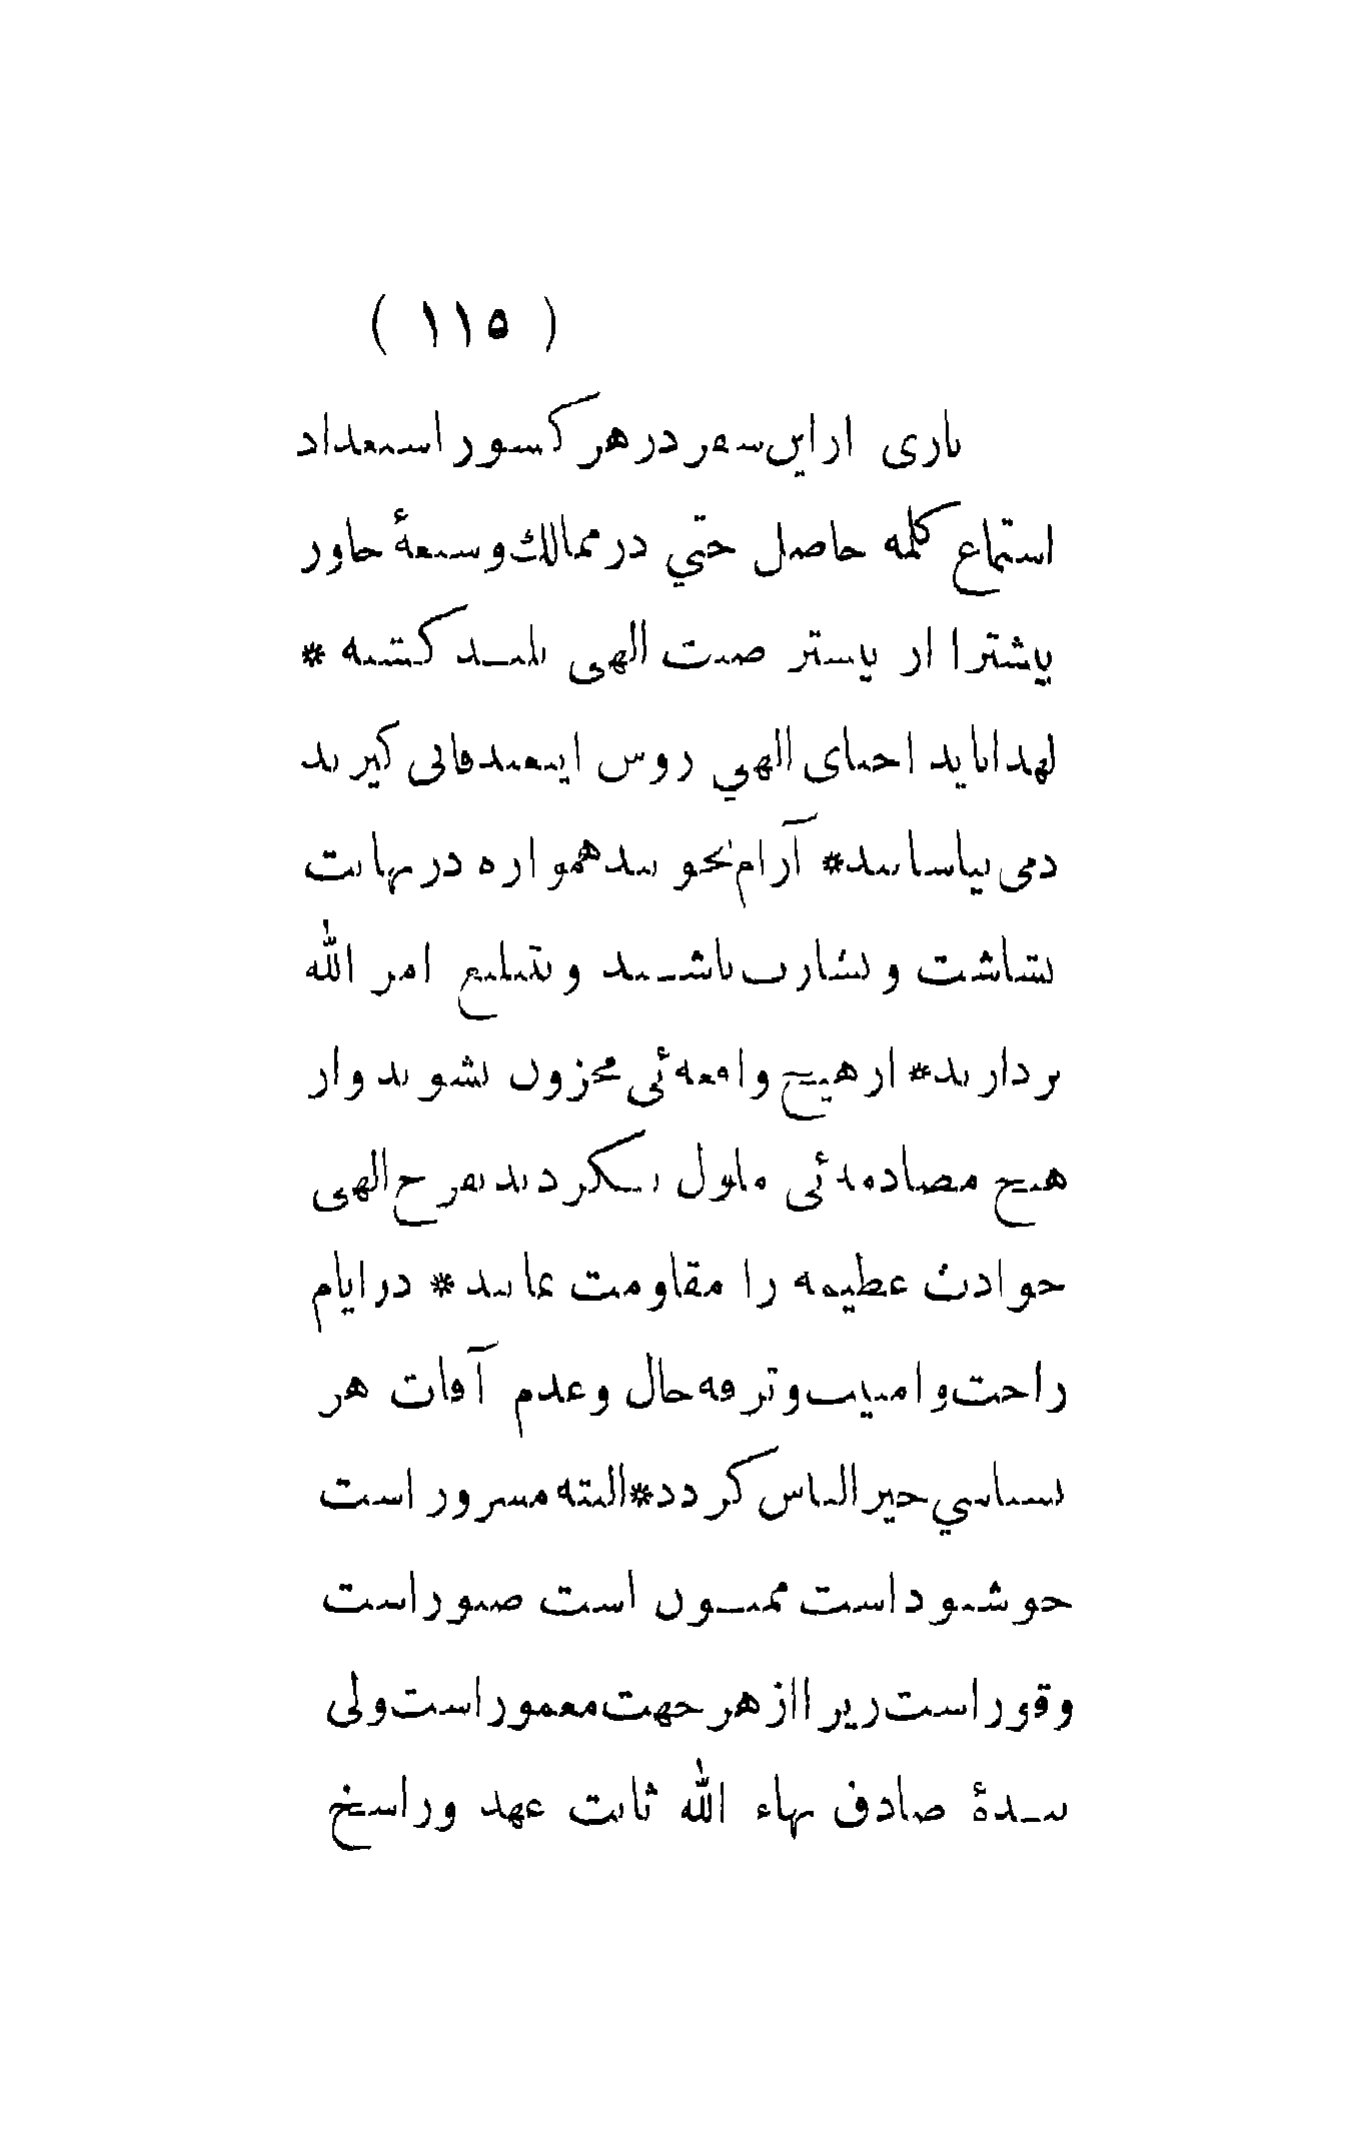 ( ١١٥ )
باری از این سفر در هر کشور استعداد
استماع کلمه حاصل حتي در ممالك وسیعۀ خاور
بیشتر از پیشتر صیت الهی بلند کشته *
لهذا باید احبای الهي روش این عبد فانی کیرند
دمی نیاسایند * آرام نجویند همواره در نهایت
بشاشت و بشارت باشند و بتبلیغ امر الله
پردازند * از هیچ واقعه ئی محزون نشوند و از
هیچ مصادمه ئی ملول نکردند بفرح الهی
حوادث عظیمه را مقاومت نمایند * در ایام
راحت و امنیت و ترفه حال و عدم آفات هر
نسناسي خیر الناس کردد * البته مسرور است
خوشنود است ممنون است صبور است
وقور است زیرا از هر جهت معمور است ولی
بندۀ صادق بهاء الله ثابت عهد و راسخ